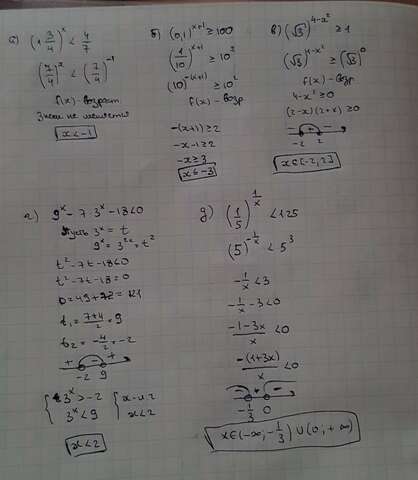 а) (1 3/4)^x < 4/7
(7/4)^x ≤ (7/4)^-1
f(x) - возраст
Знак не меняется
x < -1
б) (0,1)^x+1 ≥ 100
(1/10)^x+1 ≥ 10²
(10)^-(x+1) ≥ 10²
f(x) - возр
-(x+1) ≥ 2
-x-1 ≥ 2
-x ≥ 3
x ≤ -3
в) (√3)^4-x² ≥ 1
(√3)^4-x² ≥ (√3)^0
f(x) - возр
4-x² ≥ 0
(2-x)(2+x) ≥ 0
- + -
-2 2
x∈[-2;2]
г) 9^x - 7·3^x - 18 < 0
Пусть 3^x = t
9^x = 3^2x = t²
t² - 7t - 18 < 0
t² - 7t - 18 = 0
D = 49 + 72 = 121
t₁ = 7+4/2 = 9
t₂ = -4/2 = -2
+ - +
-2 9
{ 3^x > -2
3^x < 9
{
x < 2
x < 2
д) (1/5)^1/x < 125
(5)^-1/x < 5³
-1/x < 3
-1/x - 3 < 0
-1-3x/x < 0
-(1+3x)/x < 0
- + -
-1/3 0
x∈(-∞; -1/3) ∪ (0; +∞)